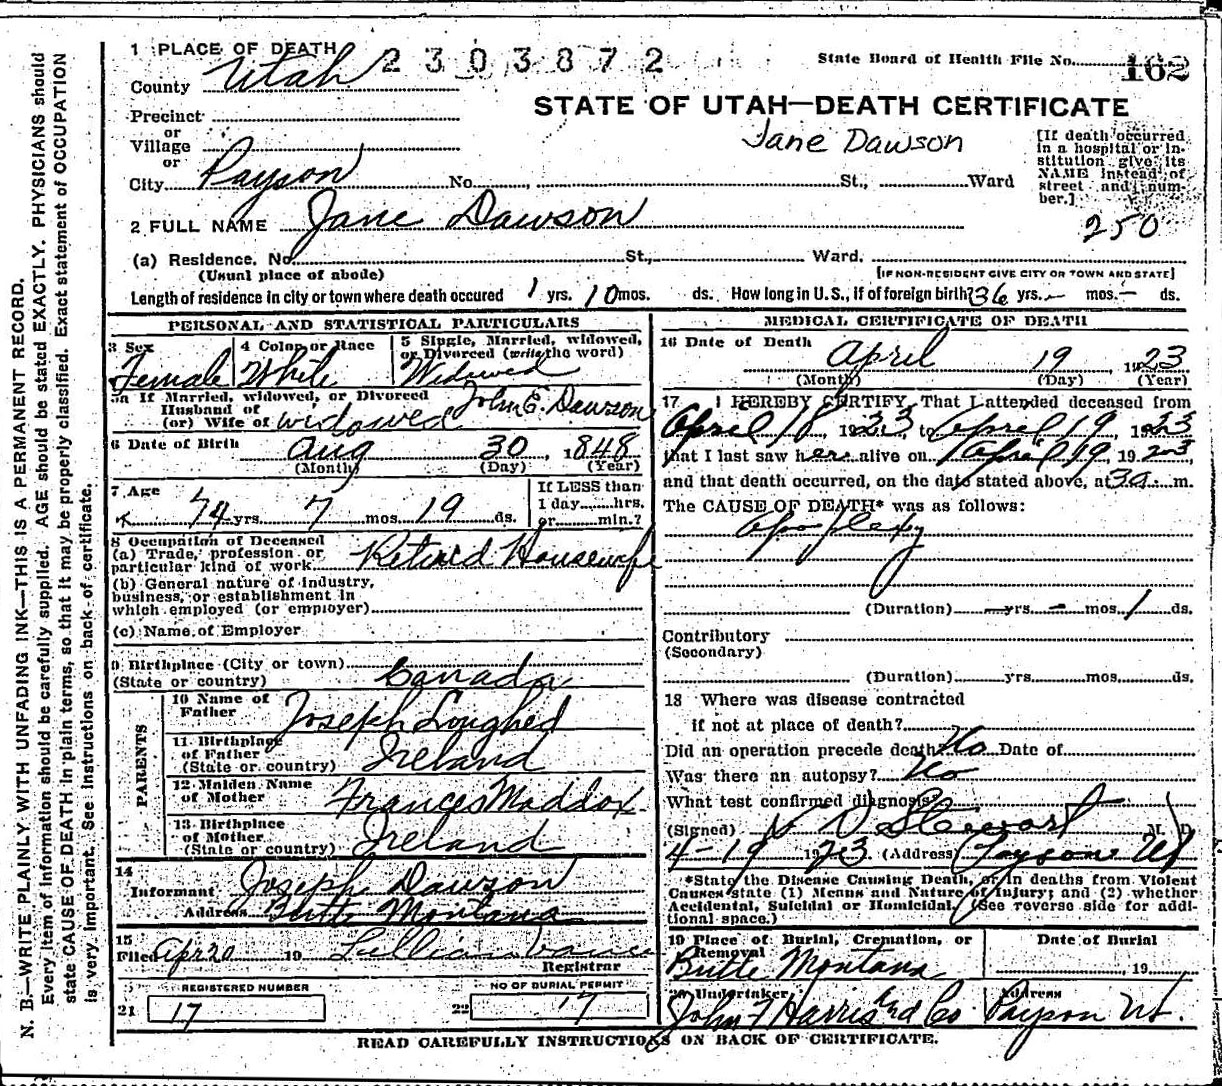 N. B.—WRITE PLAINLY WITH UNFADING INK—THIS IS A PERMANENT RECORD.
Every item of information should be carefully supplied. AGE should be stated EXACTLY. PHYSICIANS should
state CAUSE OF DEATH in plain terms, so that it may be properly classified. Exact statement of OCCUPATION
is very important. See instructions on back of certificate.
1 PLACE OF DEATH 2303872 State Board of Health File No. 162
County Utah
STATE OF UTAH—DEATH CERTIFICATE
Precinct
or
Village
or
Jane Dawson
[If death occurred
in a hospital or in-
stitution give its
NAME instead of
street and num-
ber.]
City Payson No. , St., Ward
250
2 FULL NAME Jane Dawson
(a) Residence, No. St., Ward.
(Usual place of abode) [IF NON-RESIDENT GIVE CITY OR TOWN AND STATE]
Length of residence in city or town where death occured 1 yrs. 10 mos. ds. How long in U.S., if of foreign birth? 36 yrs. – mos. – ds.
PERSONAL AND STATISTICAL PARTICULARS
3 Sex Female
4 Color or Race White
5 Single, Married, widowed,
or Divorced (write the word)
Widowed
5a If Married, widowed, or Divorced
Husband of John E. Dawson
(or) Wife of widowed
6 Date of Birth Aug 30, 1848
(Month) (Day) (Year)
7 Age
74 yrs. 7 mos. 19 ds.
If LESS than
1 day......hrs.
or......min.?
8 Occupation of Deceased
(a) Trade, profession or
particular kind of work Retired Housewife
(b) General nature of industry,
business, or establishment in
which employed (or employer)
(c) Name of Employer
9 Birthplace (City or town)
(State or country) Canada
PARENTS
10 Name of
Father Joseph Loughed
11 Birthplace
of Father
(State or country) Ireland
12 Maiden Name
of Mother Frances Maddox
13 Birthplace
of Mother
(State or country) Ireland
14
Informant Joseph Dawson
Address Butte Montana
15
Filed Apr 20 19 Lillian Vance
Registrar
REGISTERED NUMBER
21 17
NO OF BURIAL PERMIT
22 17
MEDICAL CERTIFICATE OF DEATH
16 Date of Death April 19 1923
(Month) (Day) (Year)
17 I HEREBY CERTIFY, That I attended deceased from
April 18, 1923, to April 19, 1923
that I last saw her alive on April 19, 1923,
and that death occurred, on the date stated above, at 3 a. m.
The CAUSE OF DEATH* was as follows:
Apoplexy
(Duration) – yrs. – mos. 1 ds.
Contributory
(Secondary)
(Duration) yrs. mos. ds.
18 Where was disease contracted
if not at place of death?
Did an operation precede death? No Date of
Was there an autopsy? No
What test confirmed diagnosis?
(Signed) Stewart M. D.
4-19 1923 (Address) Payson Ut
*State the Disease Causing Death, or in deaths from Violent
Causes state (1) Means and Nature of Injury; and (2) whether
Accidental, Suicidal or Homicidal. (See reverse side for addi-
tional space.)
19 Place of Burial, Cremation, or
Removal
Butte Montana
Date of Burial
, 19
20 Undertaker
John F Harris Co
Address
Payson Ut.
READ CAREFULLY INSTRUCTIONS ON BACK OF CERTIFICATE.